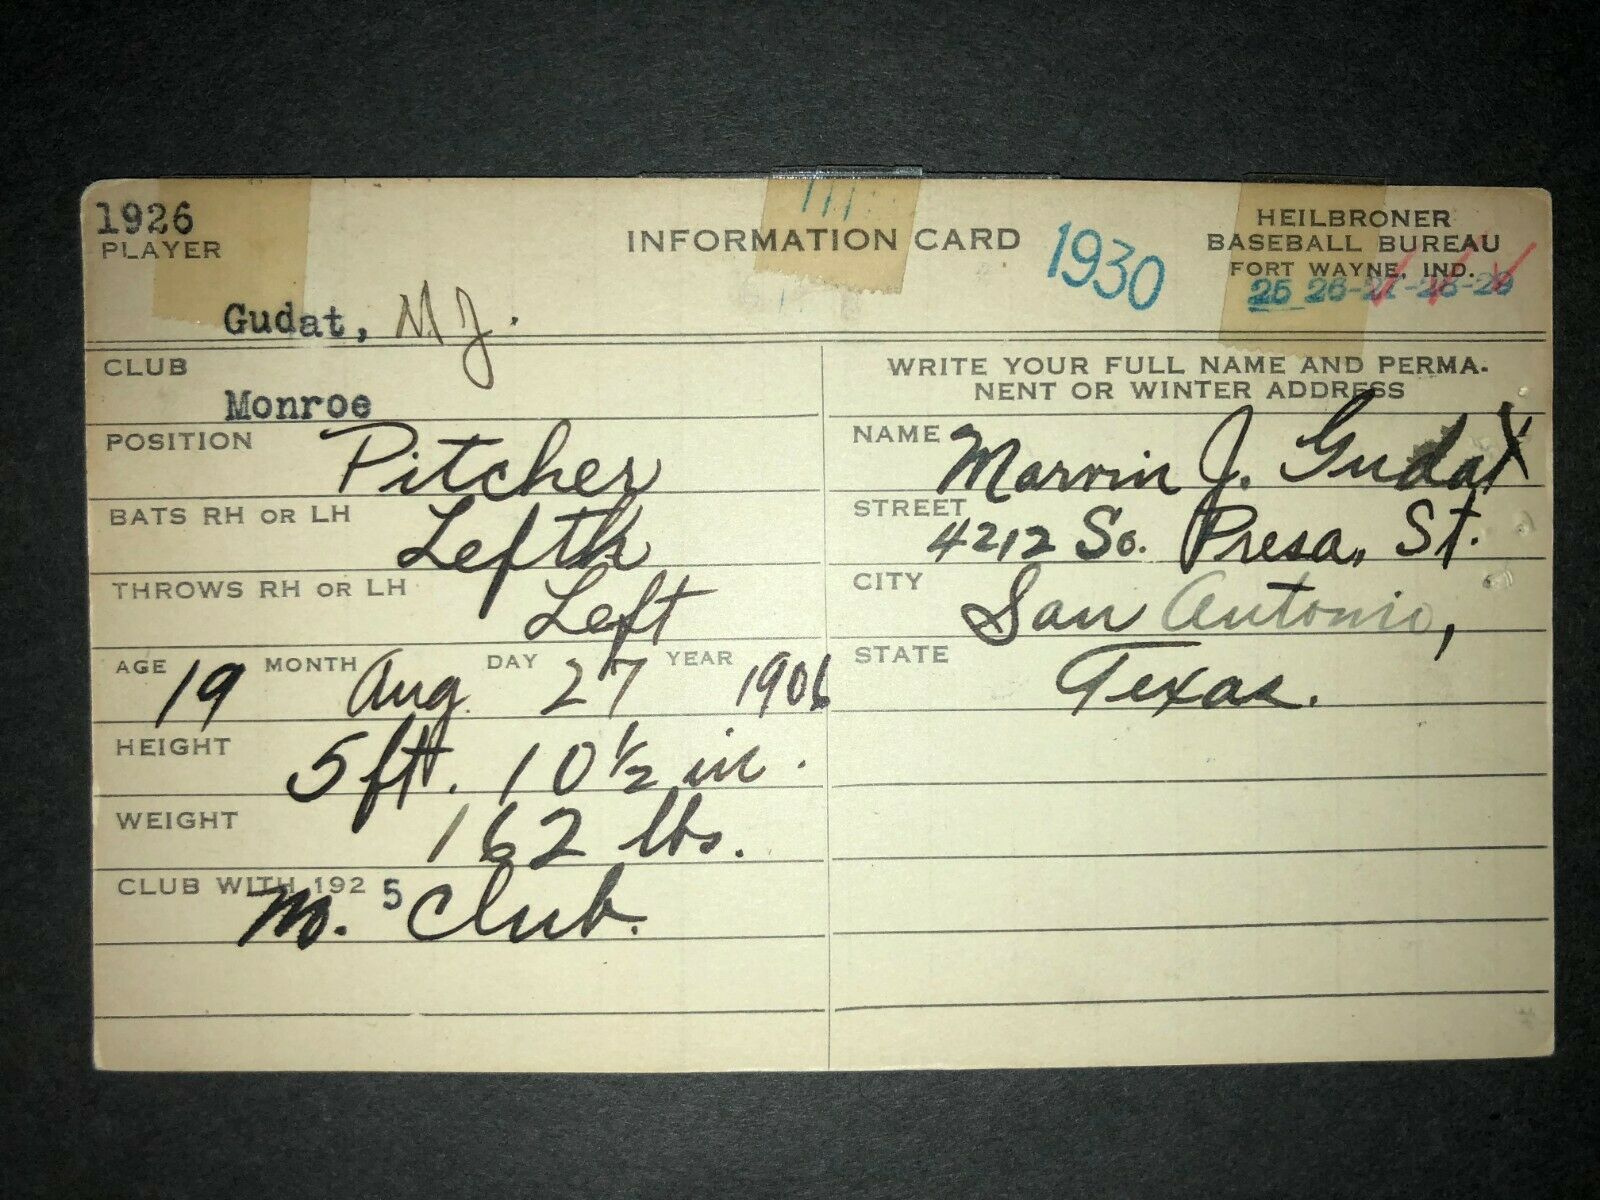 1926
PLAYER
Gudat, M J.
INFORMATION CARD
1930
HEILBRONER
BASEBALL BUREAU
FORT WAYNE, IND.
25 26-27-28-29
CLUB
Monroe
POSITION Pitcher
BATS RH OR LH Lefth
THROWS RH OR LH Left
AGE 19 MONTH Aug. DAY 27 YEAR 1906
HEIGHT 5 ft. 10 1/2 in.
WEIGHT 162 lbs.
CLUB WITH 192 5
M. Club.
WRITE YOUR FULL NAME AND PERMA-
NENT OR WINTER ADDRESS
NAME Marvin J. Gudat
STREET 4212 So. Presa, St.
CITY San Antonio,
STATE Texas.